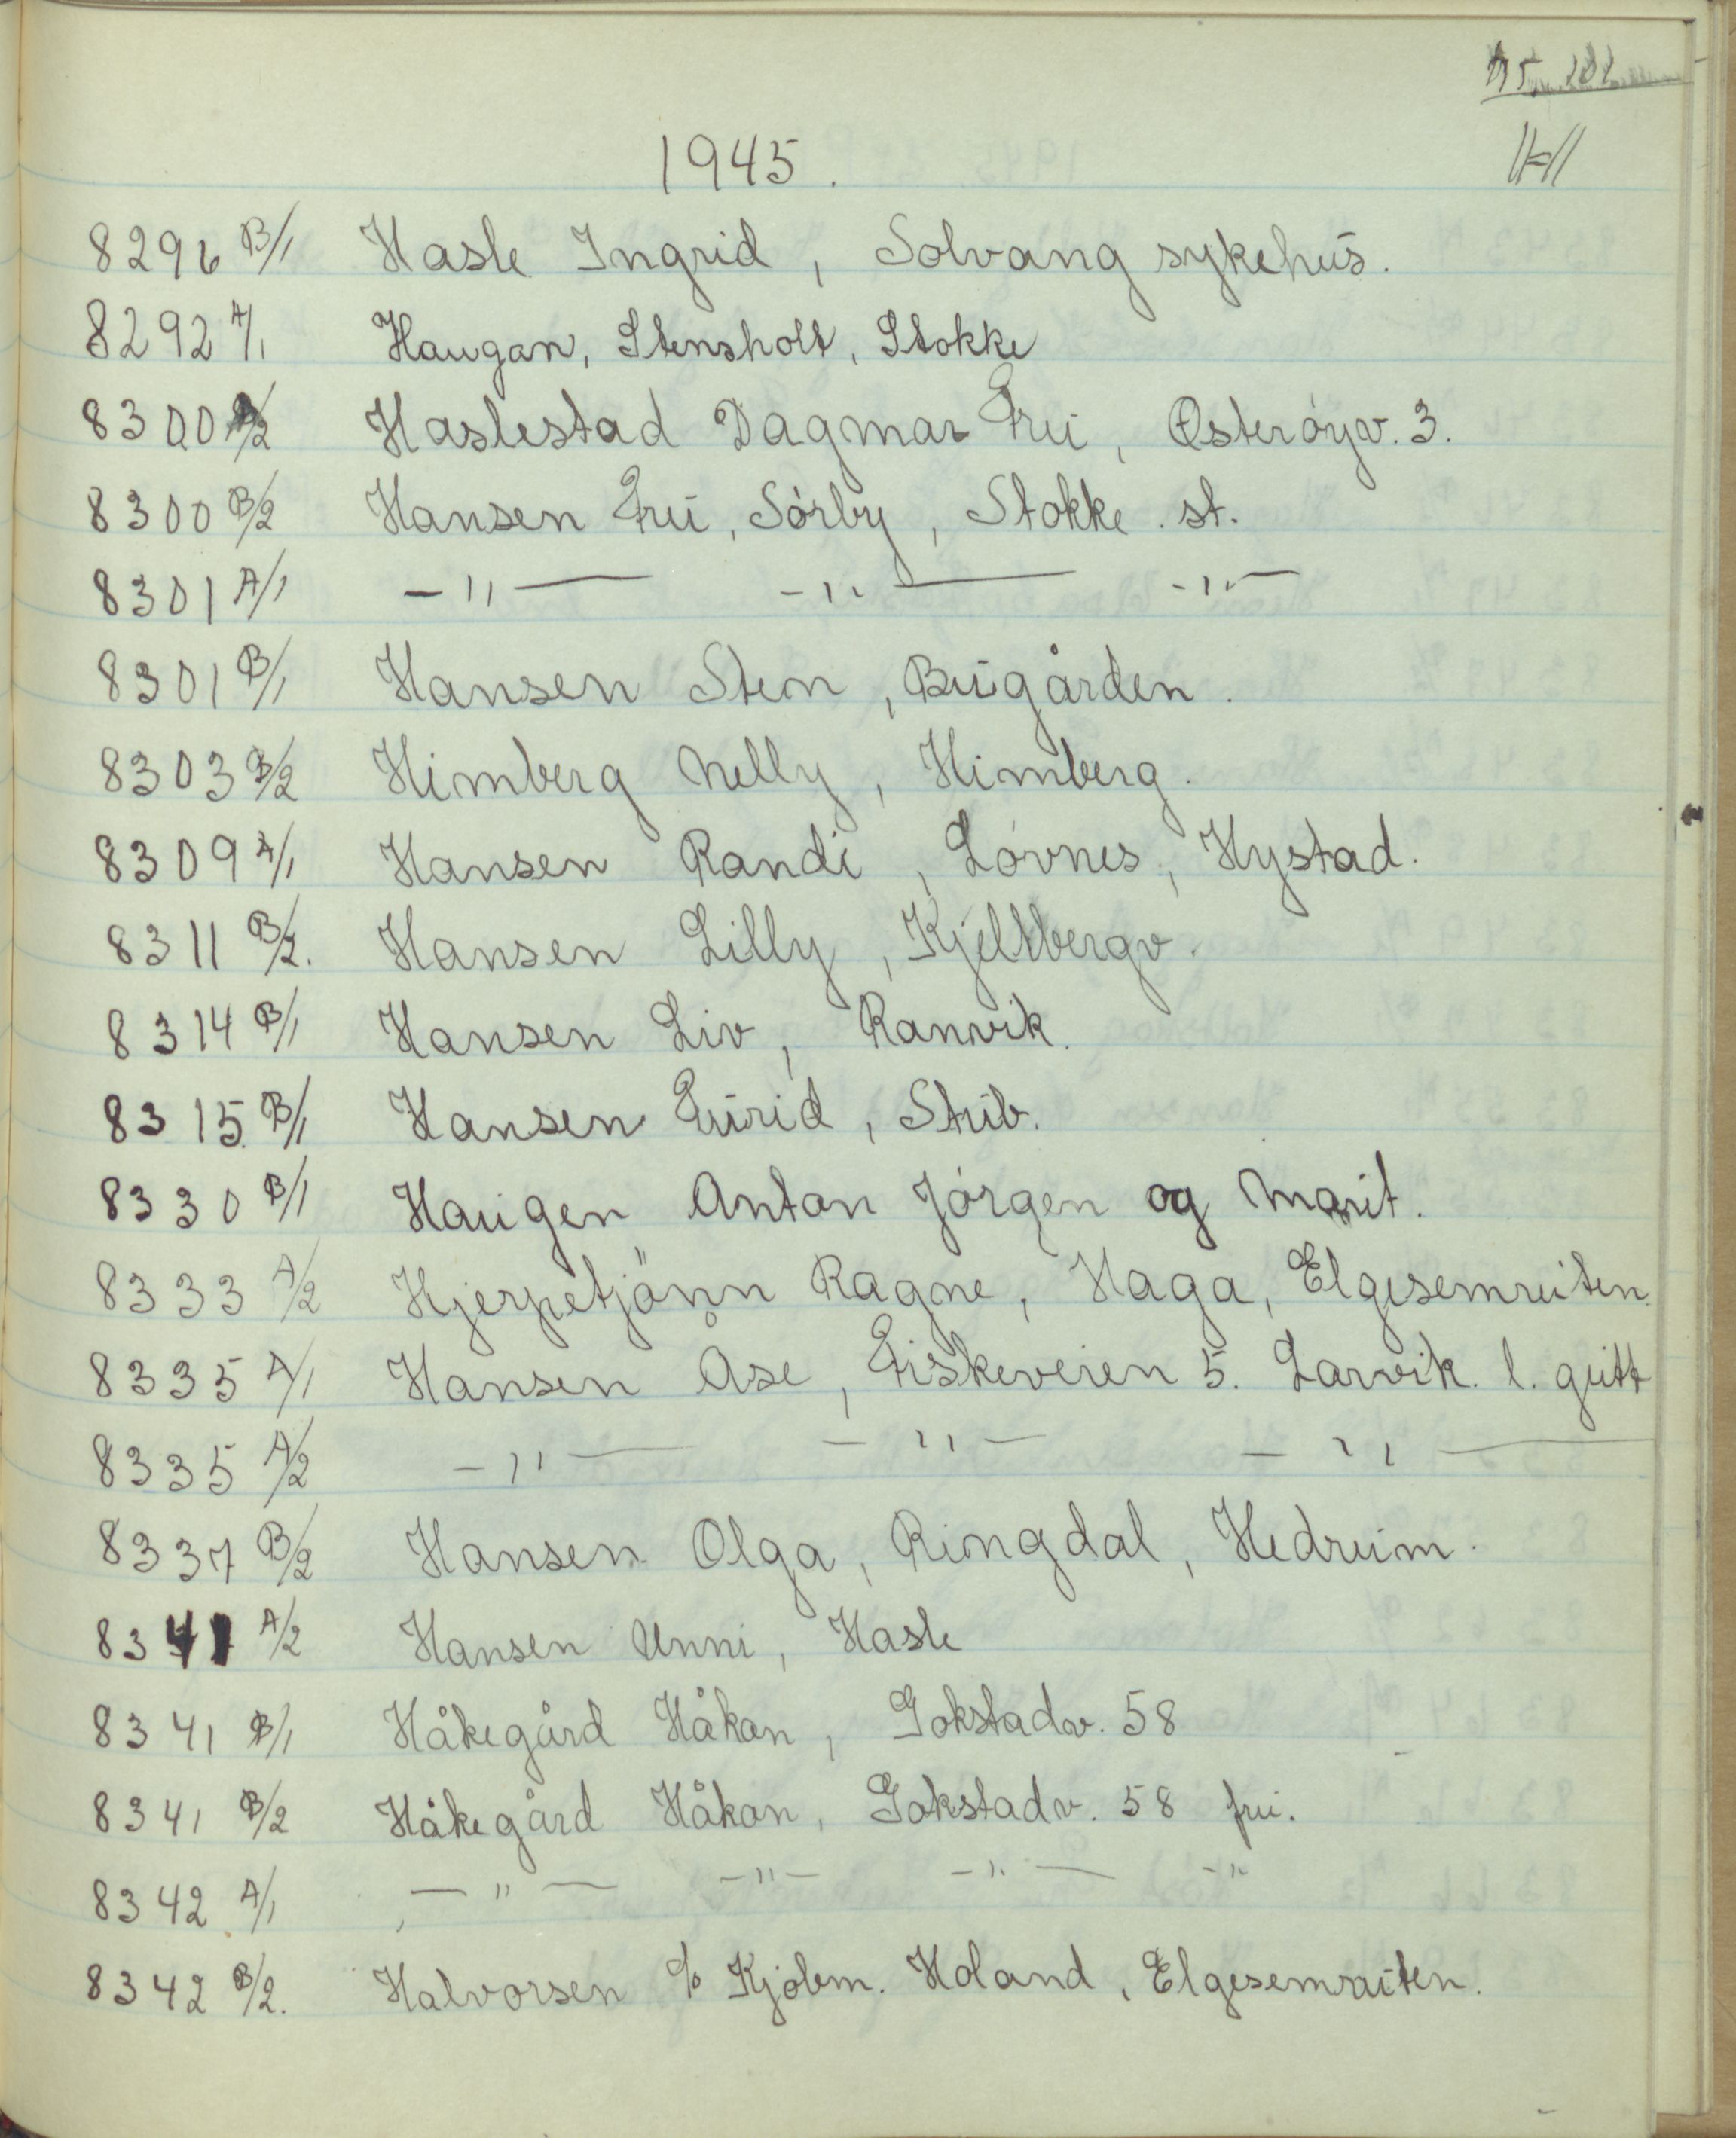 1945.
H
8296 B/1 Hasle Ingrid, Solvang sykehus.
8292 A/1 Haugan, Stensholt, Stokke
8300 A/2 Haslestad Dagmar Fru, Østerøyv. 3.
8300 B/2 Hansen Fru, Sørby, Stokke st.
8301 A/1 —"— —"— —"—
8301 B/1 Hansen Sten, Bugården.
8303 B/2 Himberg Nelly, Himberg.
8309 A/1 Hansen Randi, Løvnes, Hystad.
8311 B/2. Hansen Lilly, Kjellbergv.
8314 B/1 Hansen Liv, Ranvik.
8315 B/1 Hansen Turid, Stub.
8330 B/1 Haugen Anton Jørgen og Marit.
8333 A/2 Hjerpetjönn Ragne, Haga, Elgesemruten.
8335 A/1 Hansen Åse, Fiskeveien 5. Larvik. l. gutt
8335 A/2 —"— —"— —"—
8337 B/2 Hansen Olga, Ringdal, Hedrum.
8341 A/2 Hansen Unni, Hasle
8341 B/1 Håkegård Håkan, Gokstadv. 58
8341 B/2 Håkegård Håkan, Gokstadv. 58 fru.
8342 A/1 —"— —"— —"— —"
8342 B/2. Halvorsen c/o Kjøbm. Holand, Elgesemruten.